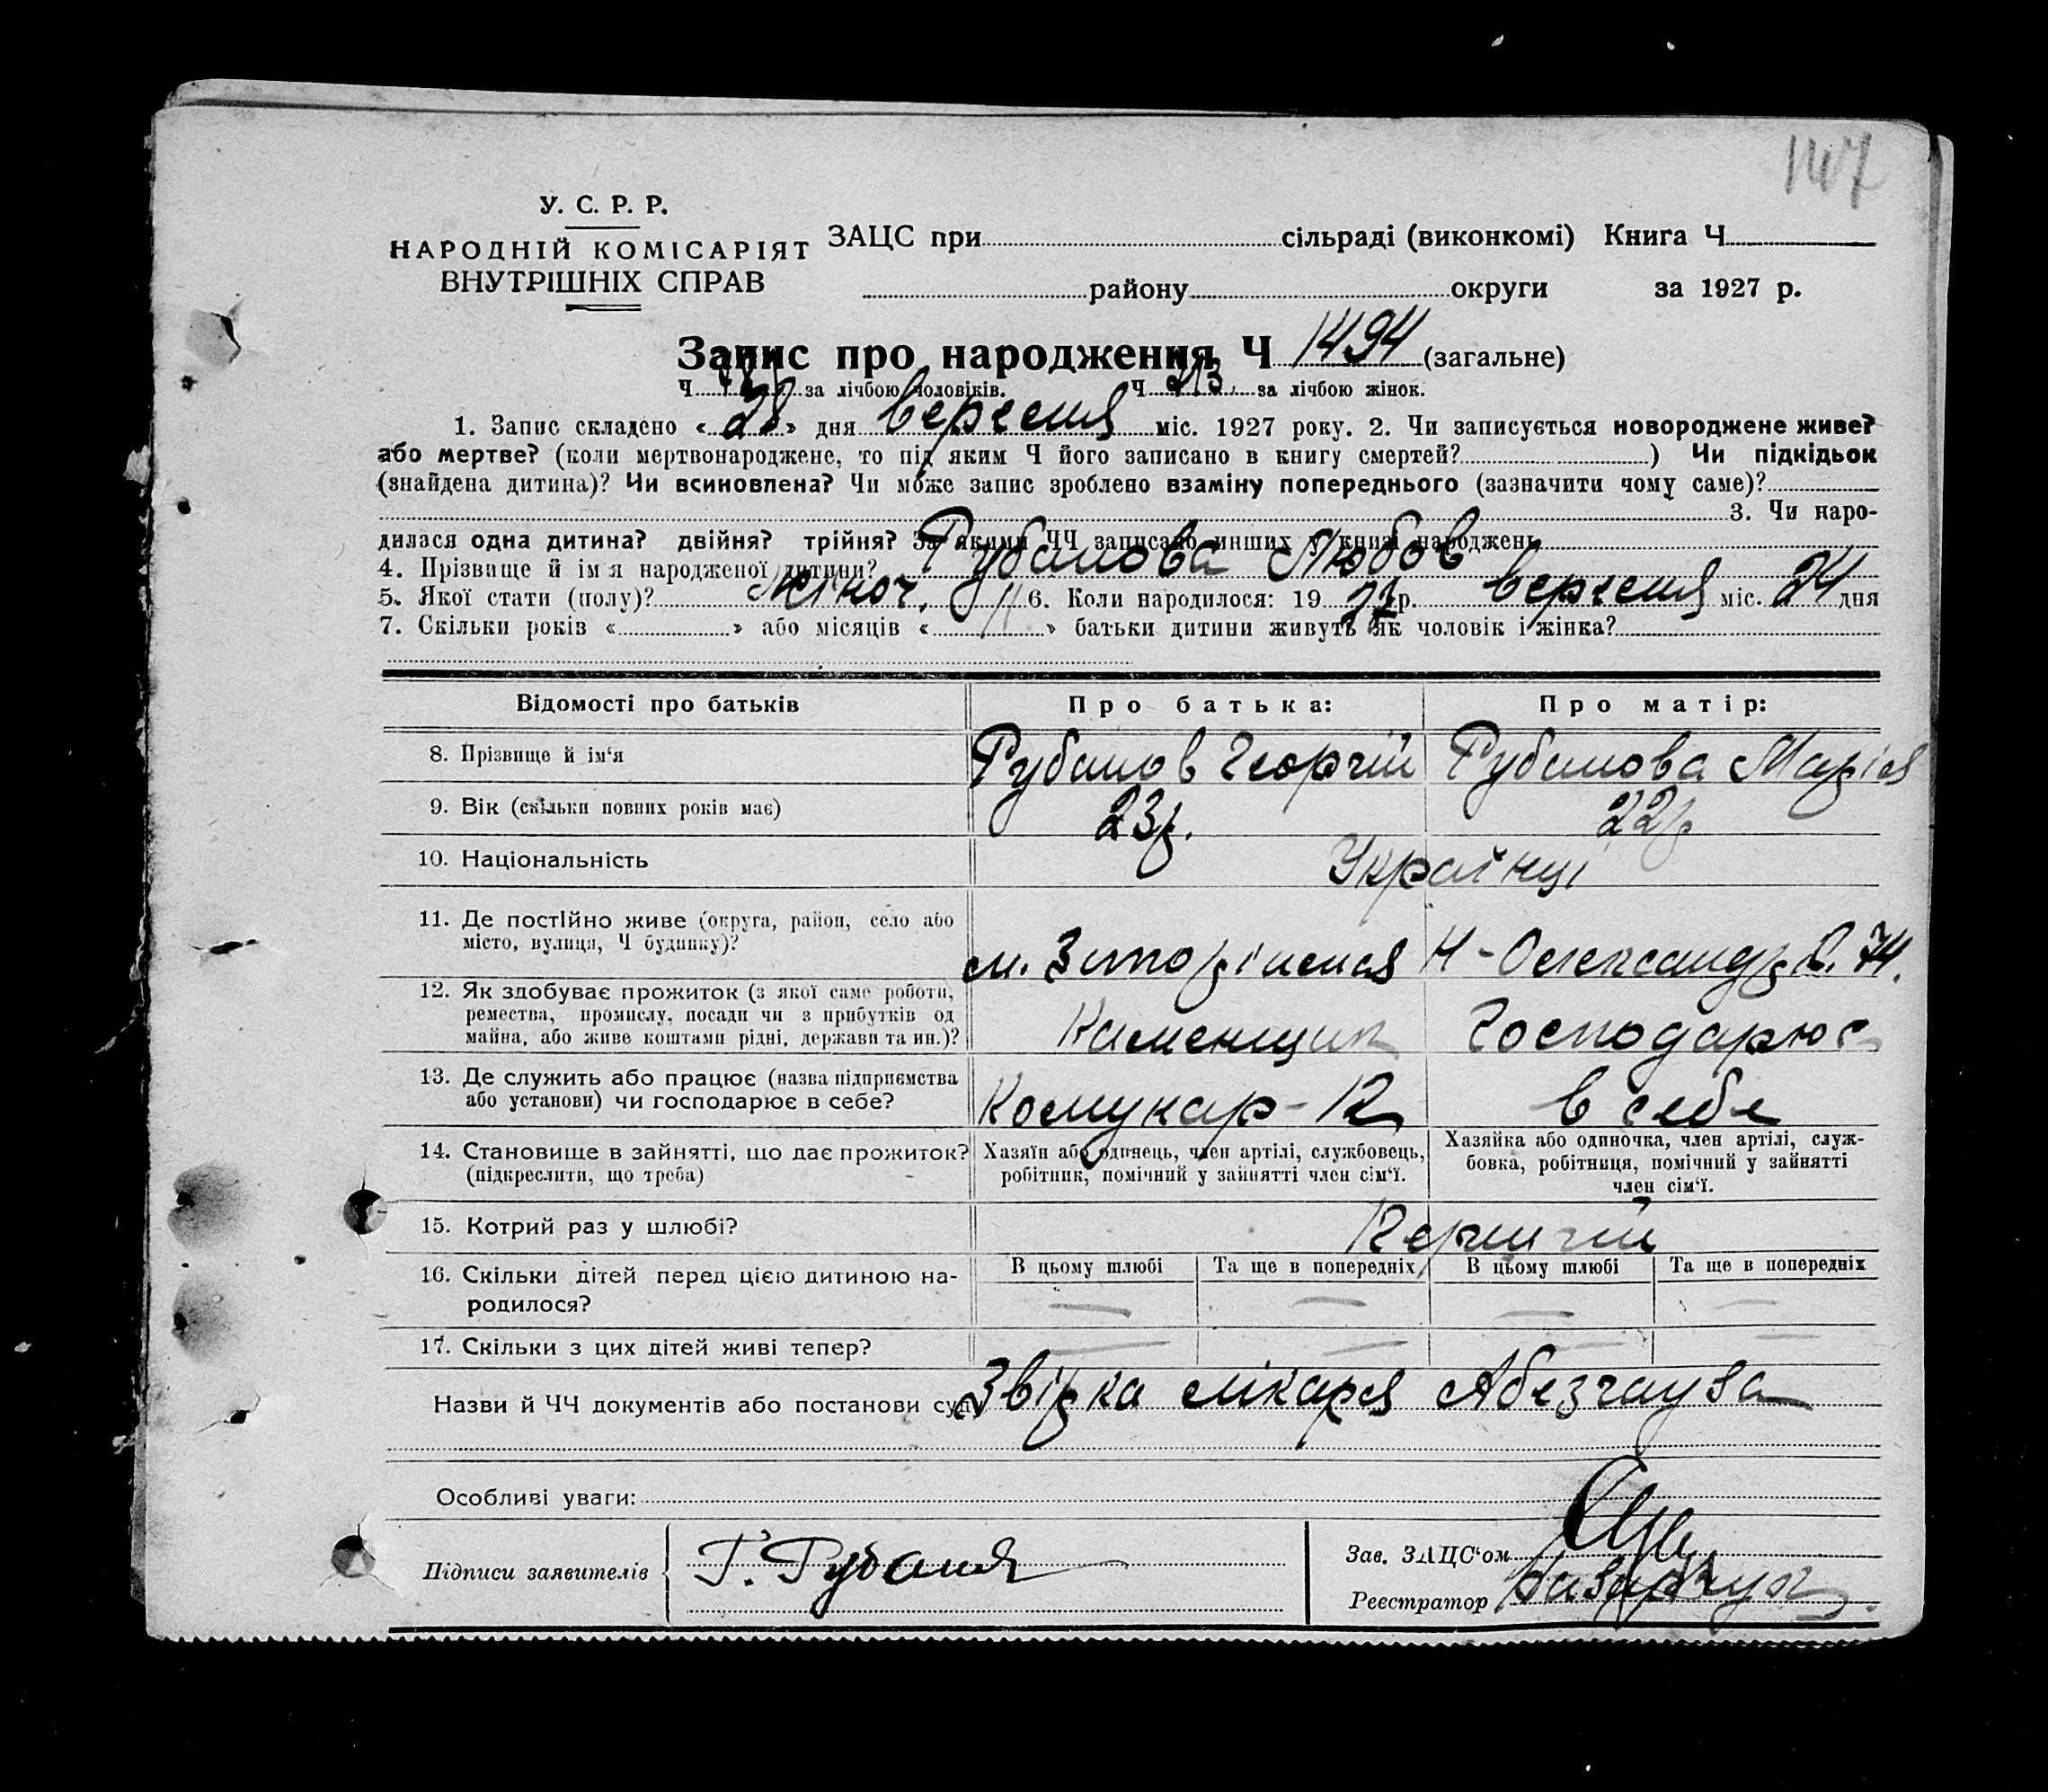 147
У. С. Р. Р.
НАРОДНІЙ КОМІСАРІЯТ
ВНУТРІШНІХ СПРАВ
ЗАЦС при сільраді (виконкомі) Книга Ч
району округи за 1927 р.
Запис про народження Ч 1494 (загальне)
Ч за лічбою чоловіків. Ч за лічбою жінок.
1. Запис складено « 28 » дня вересня міс. 1927 року. 2. Чи записується новороджене живе?
або мертве? (коли мертвонароджене, то під яким Ч його записано в книгу смертей? ) Чи підкідьок
(знайдена дитина)? Чи всиновлена? Чи може запис зроблено взаміну попереднього (зазначити чому саме)?
3. Чи наро-
дилася одна дитина? двійня? трійня? За якими ЧЧ записано инших у книзі народжень
4. Прізвище й ім'я народженої дитини? Рубанова Любов
5. Якої стати (полу)? Жіноч. 6. Коли народилося: 19 27 р. вересня міс. 24 дня
7. Скільки років « » або місяців « 11 » батьки дитини живуть як чоловік і жінка?
Відомості про батьків Про батька: Про матір:
8. Прізвище й ім'я Рубанов Георгій Рубанова Марія
9. Вік (скільки повних років має) 23р. 22р
10. Національність Українці
11. Де постійно живе (округа, район, село або
місто, вулиця, Ч будинку)? м. Запоріжжя Н-Олександр. 74.
12. Як здобуває прожиток (з якої саме роботи,
ремества, промислу, посади чи з прибутків од
майна, або живе коштами рідні, держави та ин.)? Каменщик Господарює
13. Де служить або працює (назва підприємства
або установи) чи господарює в себе? Комунар-К в себе
14. Становище в зайнятті, що дає прожиток?
(підкреслити, що треба)
Хазяїн або одинець, член артілі, службовець,
робітник, помічний у зайнятті член сім'ї.
Хазяйка або одиночка, член артілі, служ-
бовка, робітниця, помічний у зайнятті
член сім'ї.
15. Котрий раз у шлюбі? Перший
16. Скільки дітей перед цією дитиною на-
родилося?
В цьому шлюбі Та ще в попередніх В цьому шлюбі Та ще в попередніх
— — — —
17. Скільки з цих дітей живі тепер? — — — —
Назви й ЧЧ документів або постанови суду Звірка лікаря Абезгауза
Особливі уваги:
Підписи заявителів Г. Рубаня
Зав. ЗАЦС'ом
Реєстратор